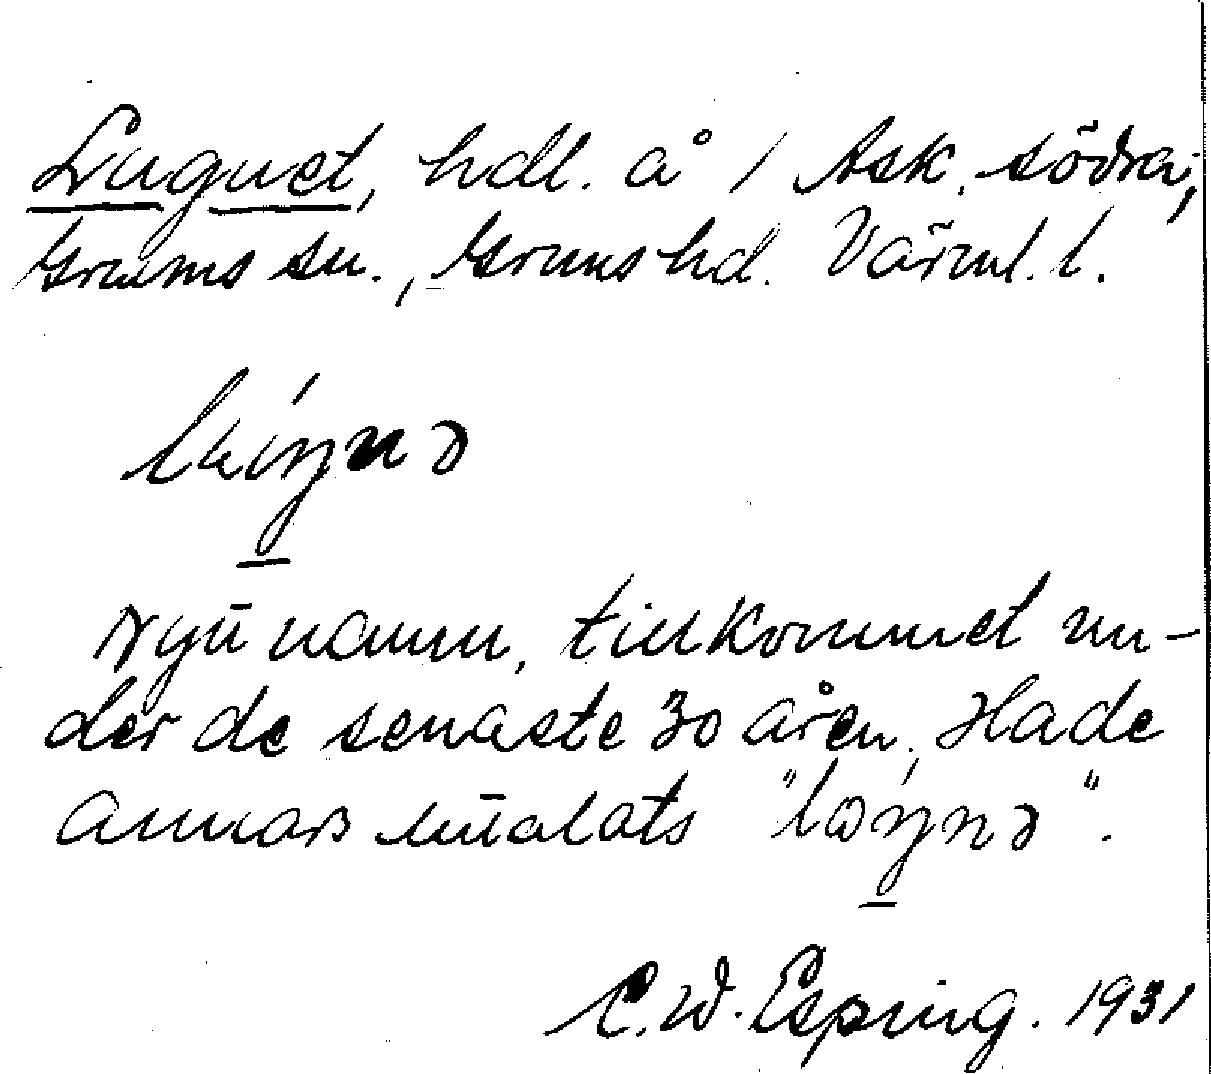 Lugnet, hdl. å 1 Ask, södra,
Grums sn., Grums hd. Värml. l.
Nytt namn, tillkommet un-
der de senaste 30 åren. Hade
annars uttalats "
C. W. Espring. 1931